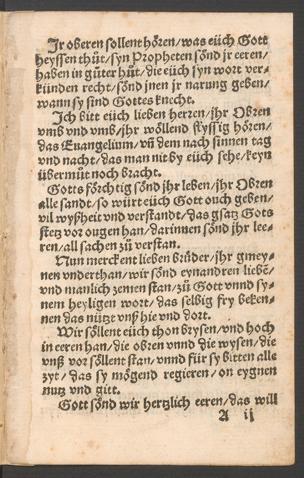 Jr oberen sollent hören/was eüch Gott
heyssen thůt/syn Propheten sönd jr eeren/
haben in gůter hůt/die eüch syn wort ver-
künden recht/sönd jnen jr narung geben/
wann sy sind Gottes knecht.
Ich bitt eüch lieben herren/jhr Obren
vmb vnd vmb/jhr wöllend flyssig hören/
das Euangelium/vñ dem nach sinnen tag
vnd nacht/das man nit by eüch sehe/keyn
übermůt noch bracht.
Gotts förchtig sönd jhr leben/jhr Obren
alle sandt/so würt eüch Gott ouch geben/
vil wyßheit vnd verstandt/das gsatz Gots
stetz vor ougen han/darinnen sönd jhr lee-
ren/all sachen zů verstan.
Nun merckent lieben brůder/jhr gmey-
nen vnderthan/wir sönd eynandren liebē/
vnd manlich zemen stan/zů Gott vnnd sy-
nem heyligen wort/das selbig fry beken-
nen das nützt vnß hie vnd dort.
Wir söllent eüch thon brysen/vnd hoch
in eeren han/die obren vnnd die wysen/die
vnß vor söllent stan/vnnd für sy bitten alle
zyt/das sy mögend regieren/on eygnen
nutz vnd gitt.
Gott sönd wir hertzlich eeren/das will
A ij